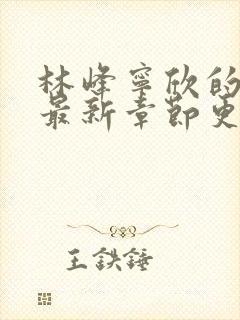 林峰寧欣的
最新章節更
王鐵錘